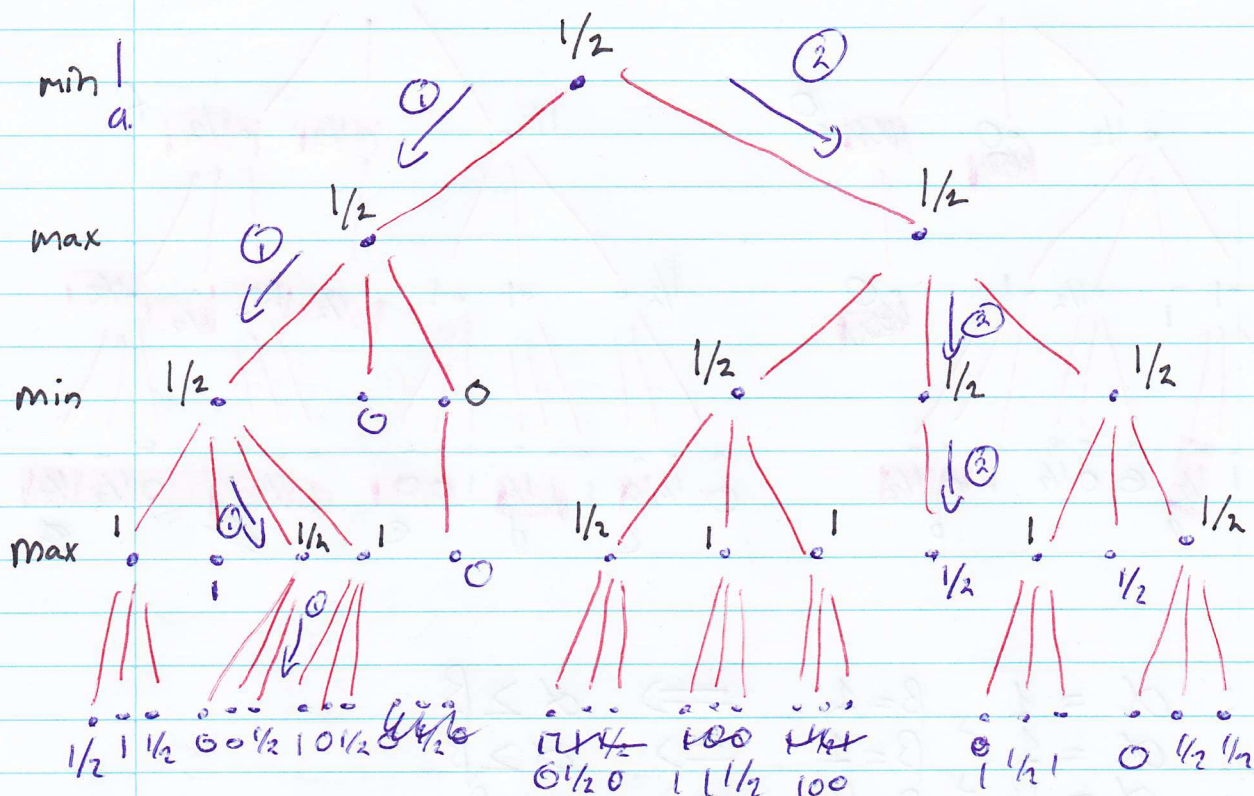 1/2
min 1
a.
① ②
1/2 1/2
max
① ②
min 1/2 0 0 1/2 1/2 1/2
① ②
max 1 1 1/2 1 0 1/2 1 1 1/2 1 1/2 1/2
①
1/2 1 1/2 0 0 1/2 1 0 1/2 1 0 0
0 1/2 0 1 1 1/2 1 0 0 1 1/2 1 0 1/2 1/2